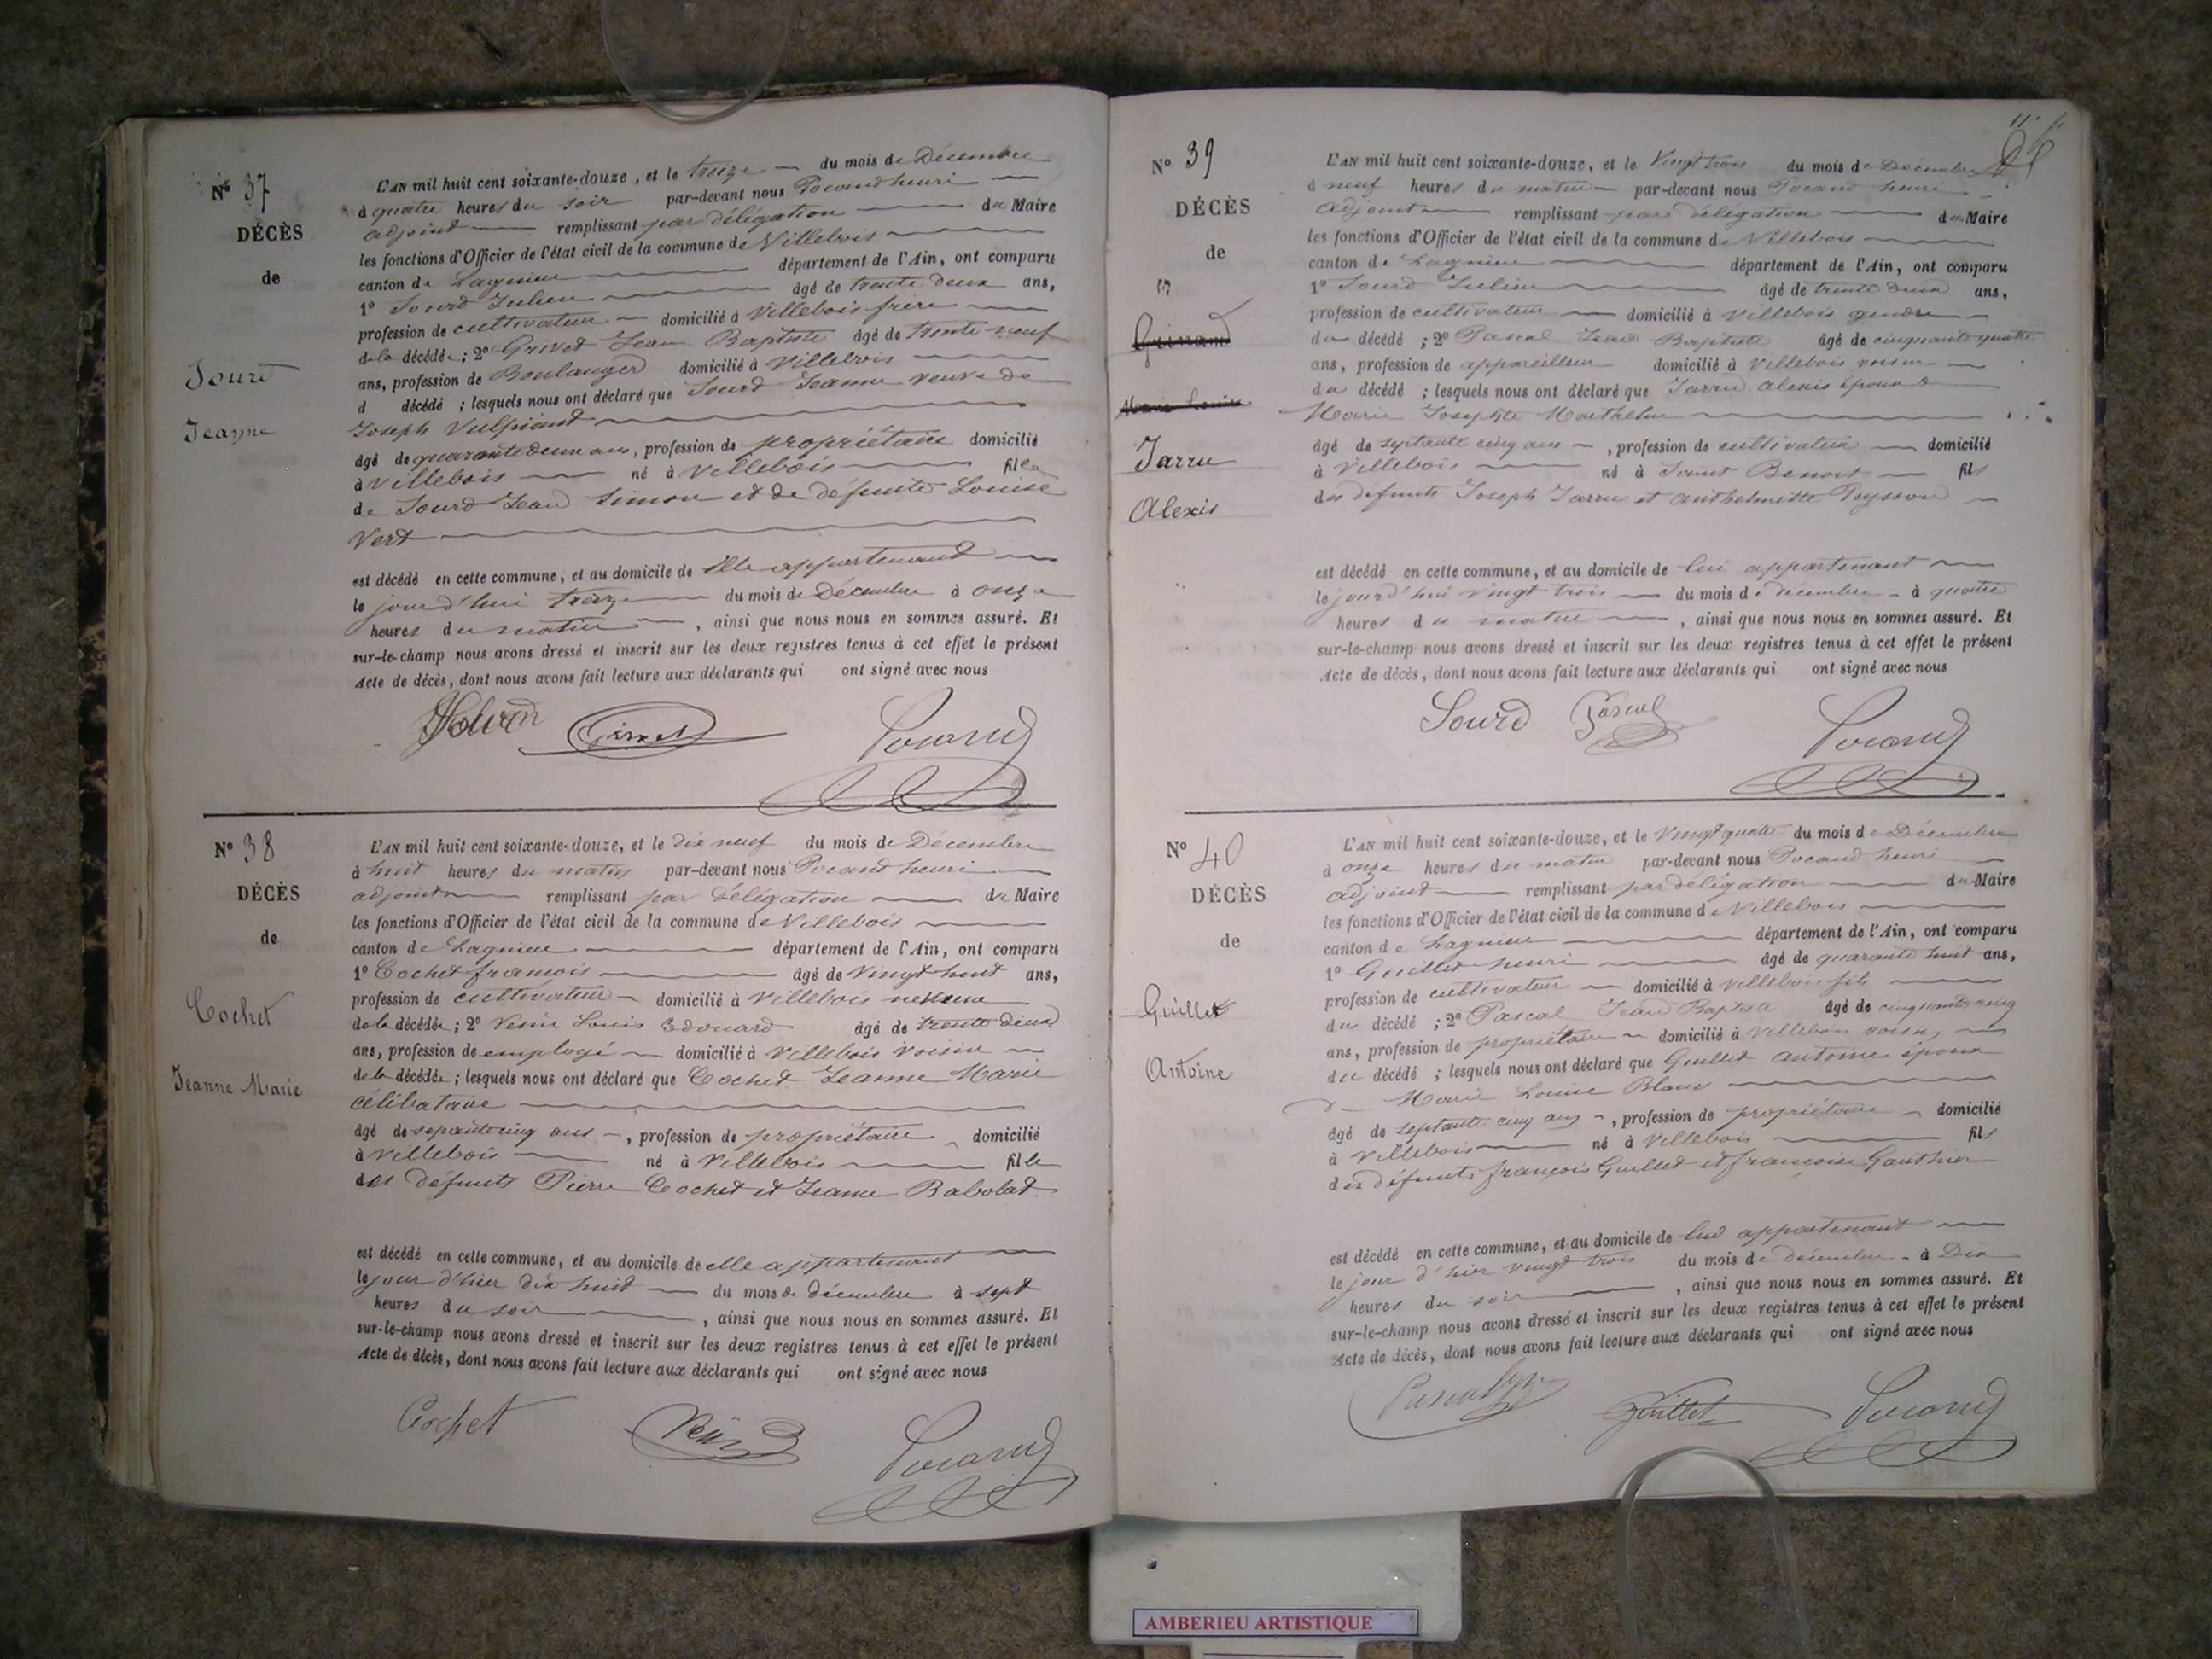 N° 37
DÉCÈS
de
Sourd
Jeanne
L'AN mil huit cent soixante-douze, et le treize du mois de Décembre
à quatre heures du soir par-devant nous Pocand henri
adjoint remplissant par délégation du Maire
les fonctions d'Officier de l'état civil de la commune de Villebois
canton de Lagnieu département de l'Ain, ont comparu
1° Sourd Julien âgé de trente deux ans,
profession de cultivateur domicilié à Villebois frère
de la décédée ; 2° Grivet Jean Baptiste âgé de trente neuf
ans, profession de Boulanger domicilié à Villebois
d décédé ; lesquels nous ont déclaré que Sourd Jeanne veuve de
Joseph Vulpiand
âgé de quarante deux ans, profession de propriétaire domicilié
à Villebois né à Villebois fille
de Sourd Jean Simon et de défunte Louise
Vert
est décédé en cette commune, et au domicile de Elle appartenant
le jour d'hui treize du mois de Décembre à onze
heures du matin, ainsi que nous nous en sommes assuré. Et
sur-le-champ nous avons dressé et inscrit sur les deux registres tenus à cet effet le présent
Acte de décès, dont nous avons fait lecture aux déclarants qui ont signé avec nous
Sourd Grivet Pocand
N° 38
DÉCÈS
de
Cochet
Jeanne Marie
L'AN mil huit cent soixante-douze, et le dix neuf du mois de Décembre
à huit heures du matin par-devant nous Pocand henri
adjoint remplissant par délégation du Maire
les fonctions d'Officier de l'état civil de la commune de Villebois
canton de Lagnieu département de l'Ain, ont comparu
1° Cochet françois âgé de vingt huit ans,
profession de cultivateur domicilié à Villebois neveu
de la décédée ; 2° Louis Edouard âgé de trente deux
ans, profession de employé domicilié à Villebois voisin
de la décédée ; lesquels nous ont déclaré que Cochet Jeanne Marie
célibataire
âgé de septante cinq ans, profession de propriétaire domicilié
à Villebois né à Villebois fille
des défunts Pierre Cochet et Jeanne Babolat
est décédé en cette commune, et au domicile de elle appartenant
le jour d'hier dix huit du mois de décembre à sept
heures du soir, ainsi que nous nous en sommes assuré. Et
sur-le-champ nous avons dressé et inscrit sur les deux registres tenus à cet effet le présent
Acte de décès, dont nous avons fait lecture aux déclarants qui ont signé avec nous
Cochet Pocand
N° 39
DÉCÈS
de
Jarru
Alexis
L'AN mil huit cent soixante-douze, et le Vingt trois du mois de Décembre
à neuf heures du matin par-devant nous Pocand henri
adjoint remplissant par délégation du Maire
les fonctions d'Officier de l'état civil de la commune de Villebois
canton de Lagnieu département de l'Ain, ont comparu
1° Sourd Julien âgé de trente deux ans,
profession de cultivateur domicilié à Villebois gendre
du décédé ; 2° Pascal Jean Baptiste âgé de cinquante quatre
ans, profession de appareilleur domicilié à Villebois voisin
du décédé ; lesquels nous ont déclaré que Jarru alexis époux de
Marie Josephte Marthelin
âgé de septante cinq ans, profession de cultivateur domicilié
à Villebois né à Saint Benoit fils
des défunts Joseph Jarru et anthelmette Peysson
est décédé en cette commune, et au domicile de lui appartenant
le jour d'hui vingt trois du mois de décembre à quatre
heures du matin, ainsi que nous nous en sommes assuré. Et
sur-le-champ nous avons dressé et inscrit sur les deux registres tenus à cet effet le présent
Acte de décès, dont nous avons fait lecture aux déclarants qui ont signé avec nous
Sourd Pascal Pocand
N° 40
DÉCÈS
de
Guillet
Antoine
L'AN mil huit cent soixante-douze, et le Vingt quatre du mois de Décembre
à onze heures du matin par-devant nous Pocand henri
adjoint remplissant par délégation du Maire
les fonctions d'Officier de l'état civil de la commune de Villebois
canton de Lagnieu département de l'Ain, ont comparu
1° Guillet henri âgé de quarante huit ans,
profession de cultivateur domicilié à Villebois fils
du décédé ; 2° Pascal Jean Baptiste âgé de cinquante cinq
ans, profession de propriétaire domicilié à Villebois voisin
du décédé ; lesquels nous ont déclaré que Guillet antoine époux
de Marie Louise Blanc
âgé de septante cinq ans, profession de propriétaire domicilié
à Villebois né à Villebois fils
des défunts françois Guillet et françoise Gauthier
est décédé en cette commune, et au domicile de lui appartenant
le jour d'hier vingt trois du mois de décembre à Dix
heures du soir, ainsi que nous nous en sommes assuré. Et
sur-le-champ nous avons dressé et inscrit sur les deux registres tenus à cet effet le présent
Acte de décès, dont nous avons fait lecture aux déclarants qui ont signé avec nous
Pascal Guillet Pocand
AMBERIEU ARTISTIQUE